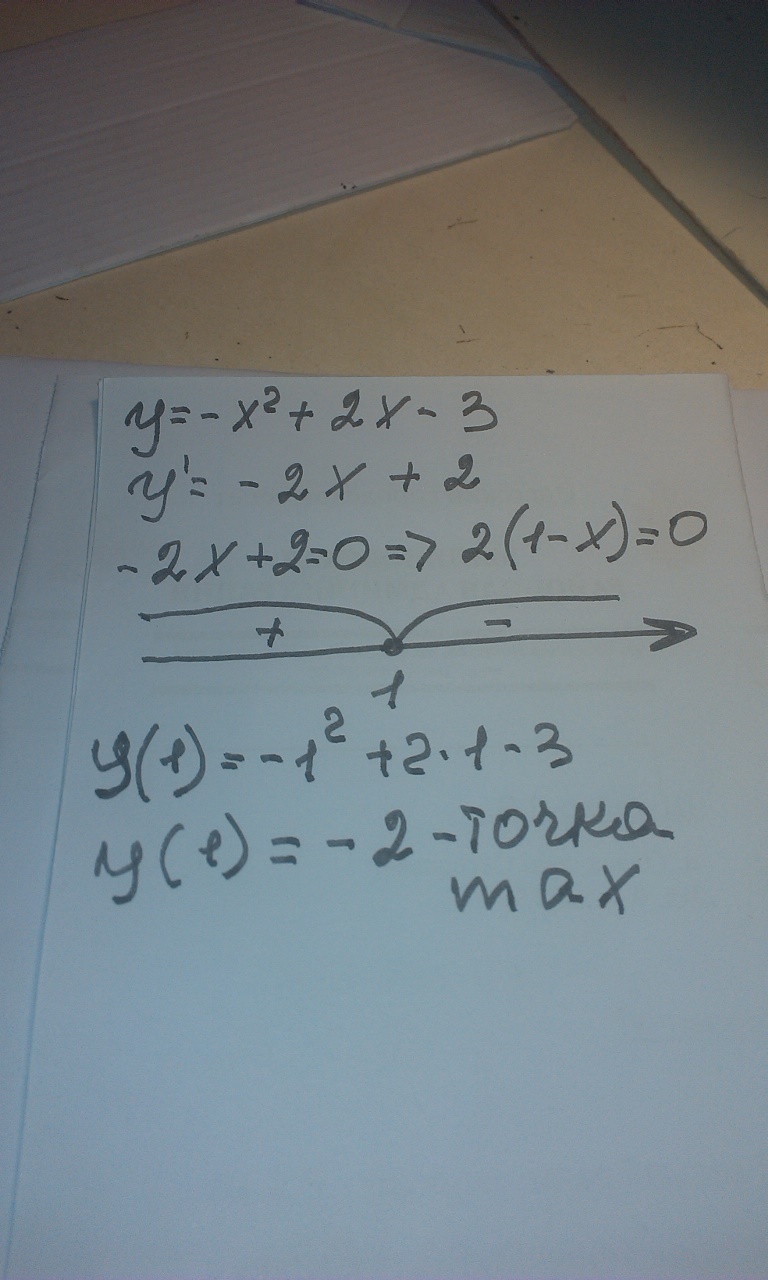 y=-x²+2x-3
y'=-2x+2
-2x+2=0=>2(1-x)=0
+ -
1
y(1)=-1²+2·1-3
y(1)=-2-точка
max